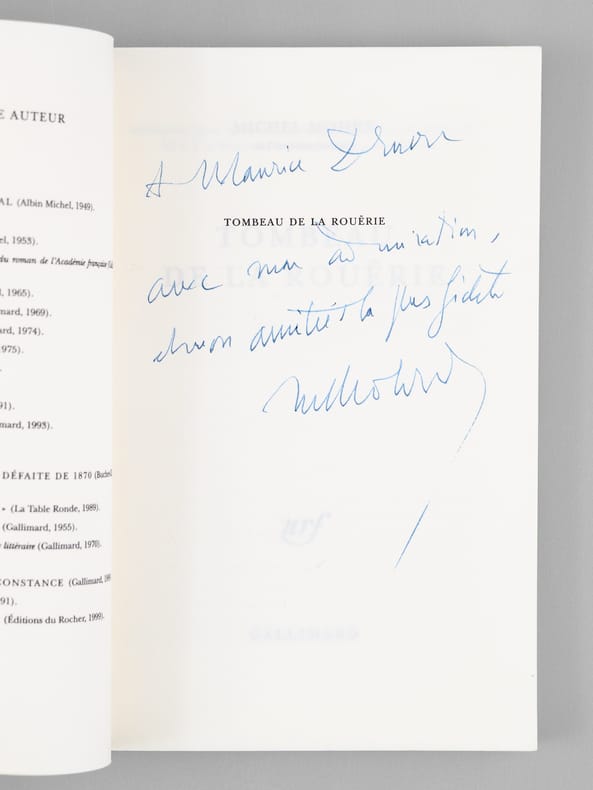 E AUTEUR
AL (Albin Michel, 1949).
el, 1953).
du roman de l'Académie française
l, 1965).
mard, 1969).
ard, 1974).
1975).
91).
mard, 1993).
DÉFAITE DE 1870 (Buchet-C
» (La Table Ronde, 1989).
(Gallimard, 1955).
littéraire (Gallimard, 1970).
CONSTANCE (Gallimard, 199
991).
(Éditions du Rocher, 1999).
A Maurice Druon
TOMBEAU DE LA ROUËRIE
avec mon admiration,
et mon amitié la plus fidèle
TOMBEAU
DE LA ROUËRIE
nrf
GALLIMARD